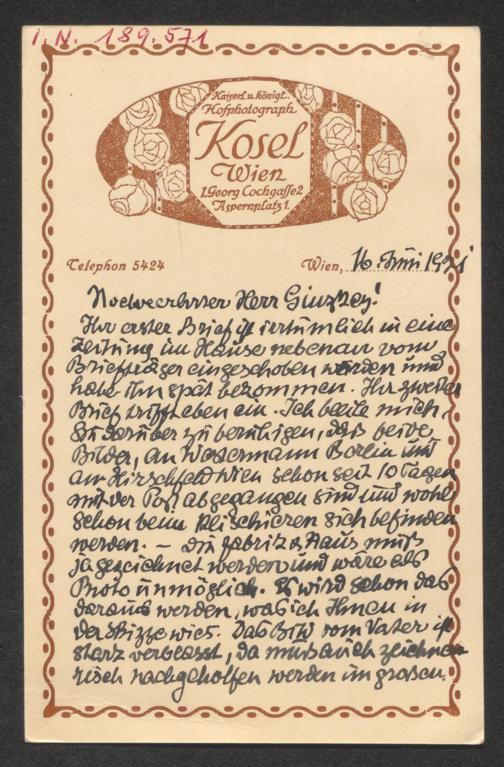 I.N. 189.571
Kaiserl. u. königl.
Hofphotograph
Kosel
Wien
1. Georg Cochgasse 2
Aspernplatz 1.
Telephon 5424
Wien, 16. Juni 1921
Hochverehrter Herr Ginzkey!
Ihr erster Brief ist irrtümlich in eine
Zeitung im Hause nebenan vom
Briefträger eingeschoben worden und
habe ihn spät bekommen. Ihr zweiter
Brief trifft eben ein. Ich beeile mich,
Sie darüber zu beruhigen, dass beide
Bilder, an Westermann Berlin und
an Hirschfeld Wien schon seit 10 Tagen
mit der Post abgegangen sind und wohl
schon beim Klischieren sich befinden
werden. — Die Fabrik &. Haus muss
ja gezeichnet werden und wäre als
Photo unmöglich. Es wird schon das
daraus werden, was ich Ihnen in
der Skizze wies. Das Bild vom Vater ist
stark verblasst, da muss auch zeichne-
risch nachgeholfen werden im grossen.